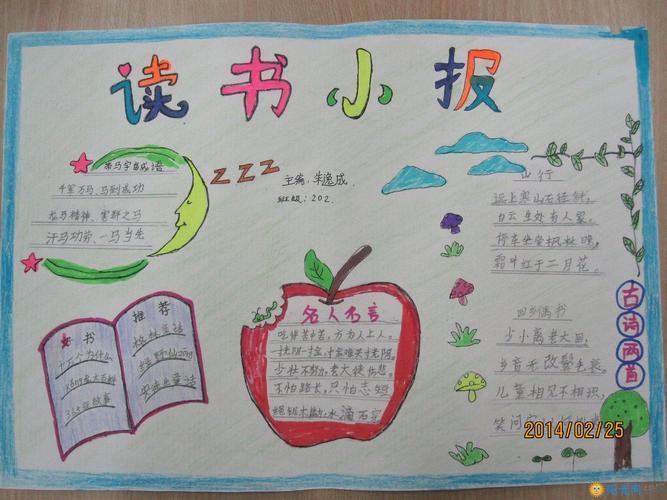 读书小报
带马字的成语
千军万马、马到成功
龙马精神、害群之马
汗马功劳、一马当先
ZZZ
主编:朱逸成
班级:202.
山行
远上寒山石径斜,
白云生处有人家。
停车坐爱枫林晚,
霜叶红于二月花。
回乡偶书
少小离老大回,
乡音无改鬓毛衰。
儿童相见不相识,
笑问
古诗两首
好书
推荐
十万个为什么
名人名言
吃得苦中苦,方为人上人。
少壮不努力,老大徒伤悲。
不怕路长,只怕志短
绳锯木断,水滴石穿
2014/02/25